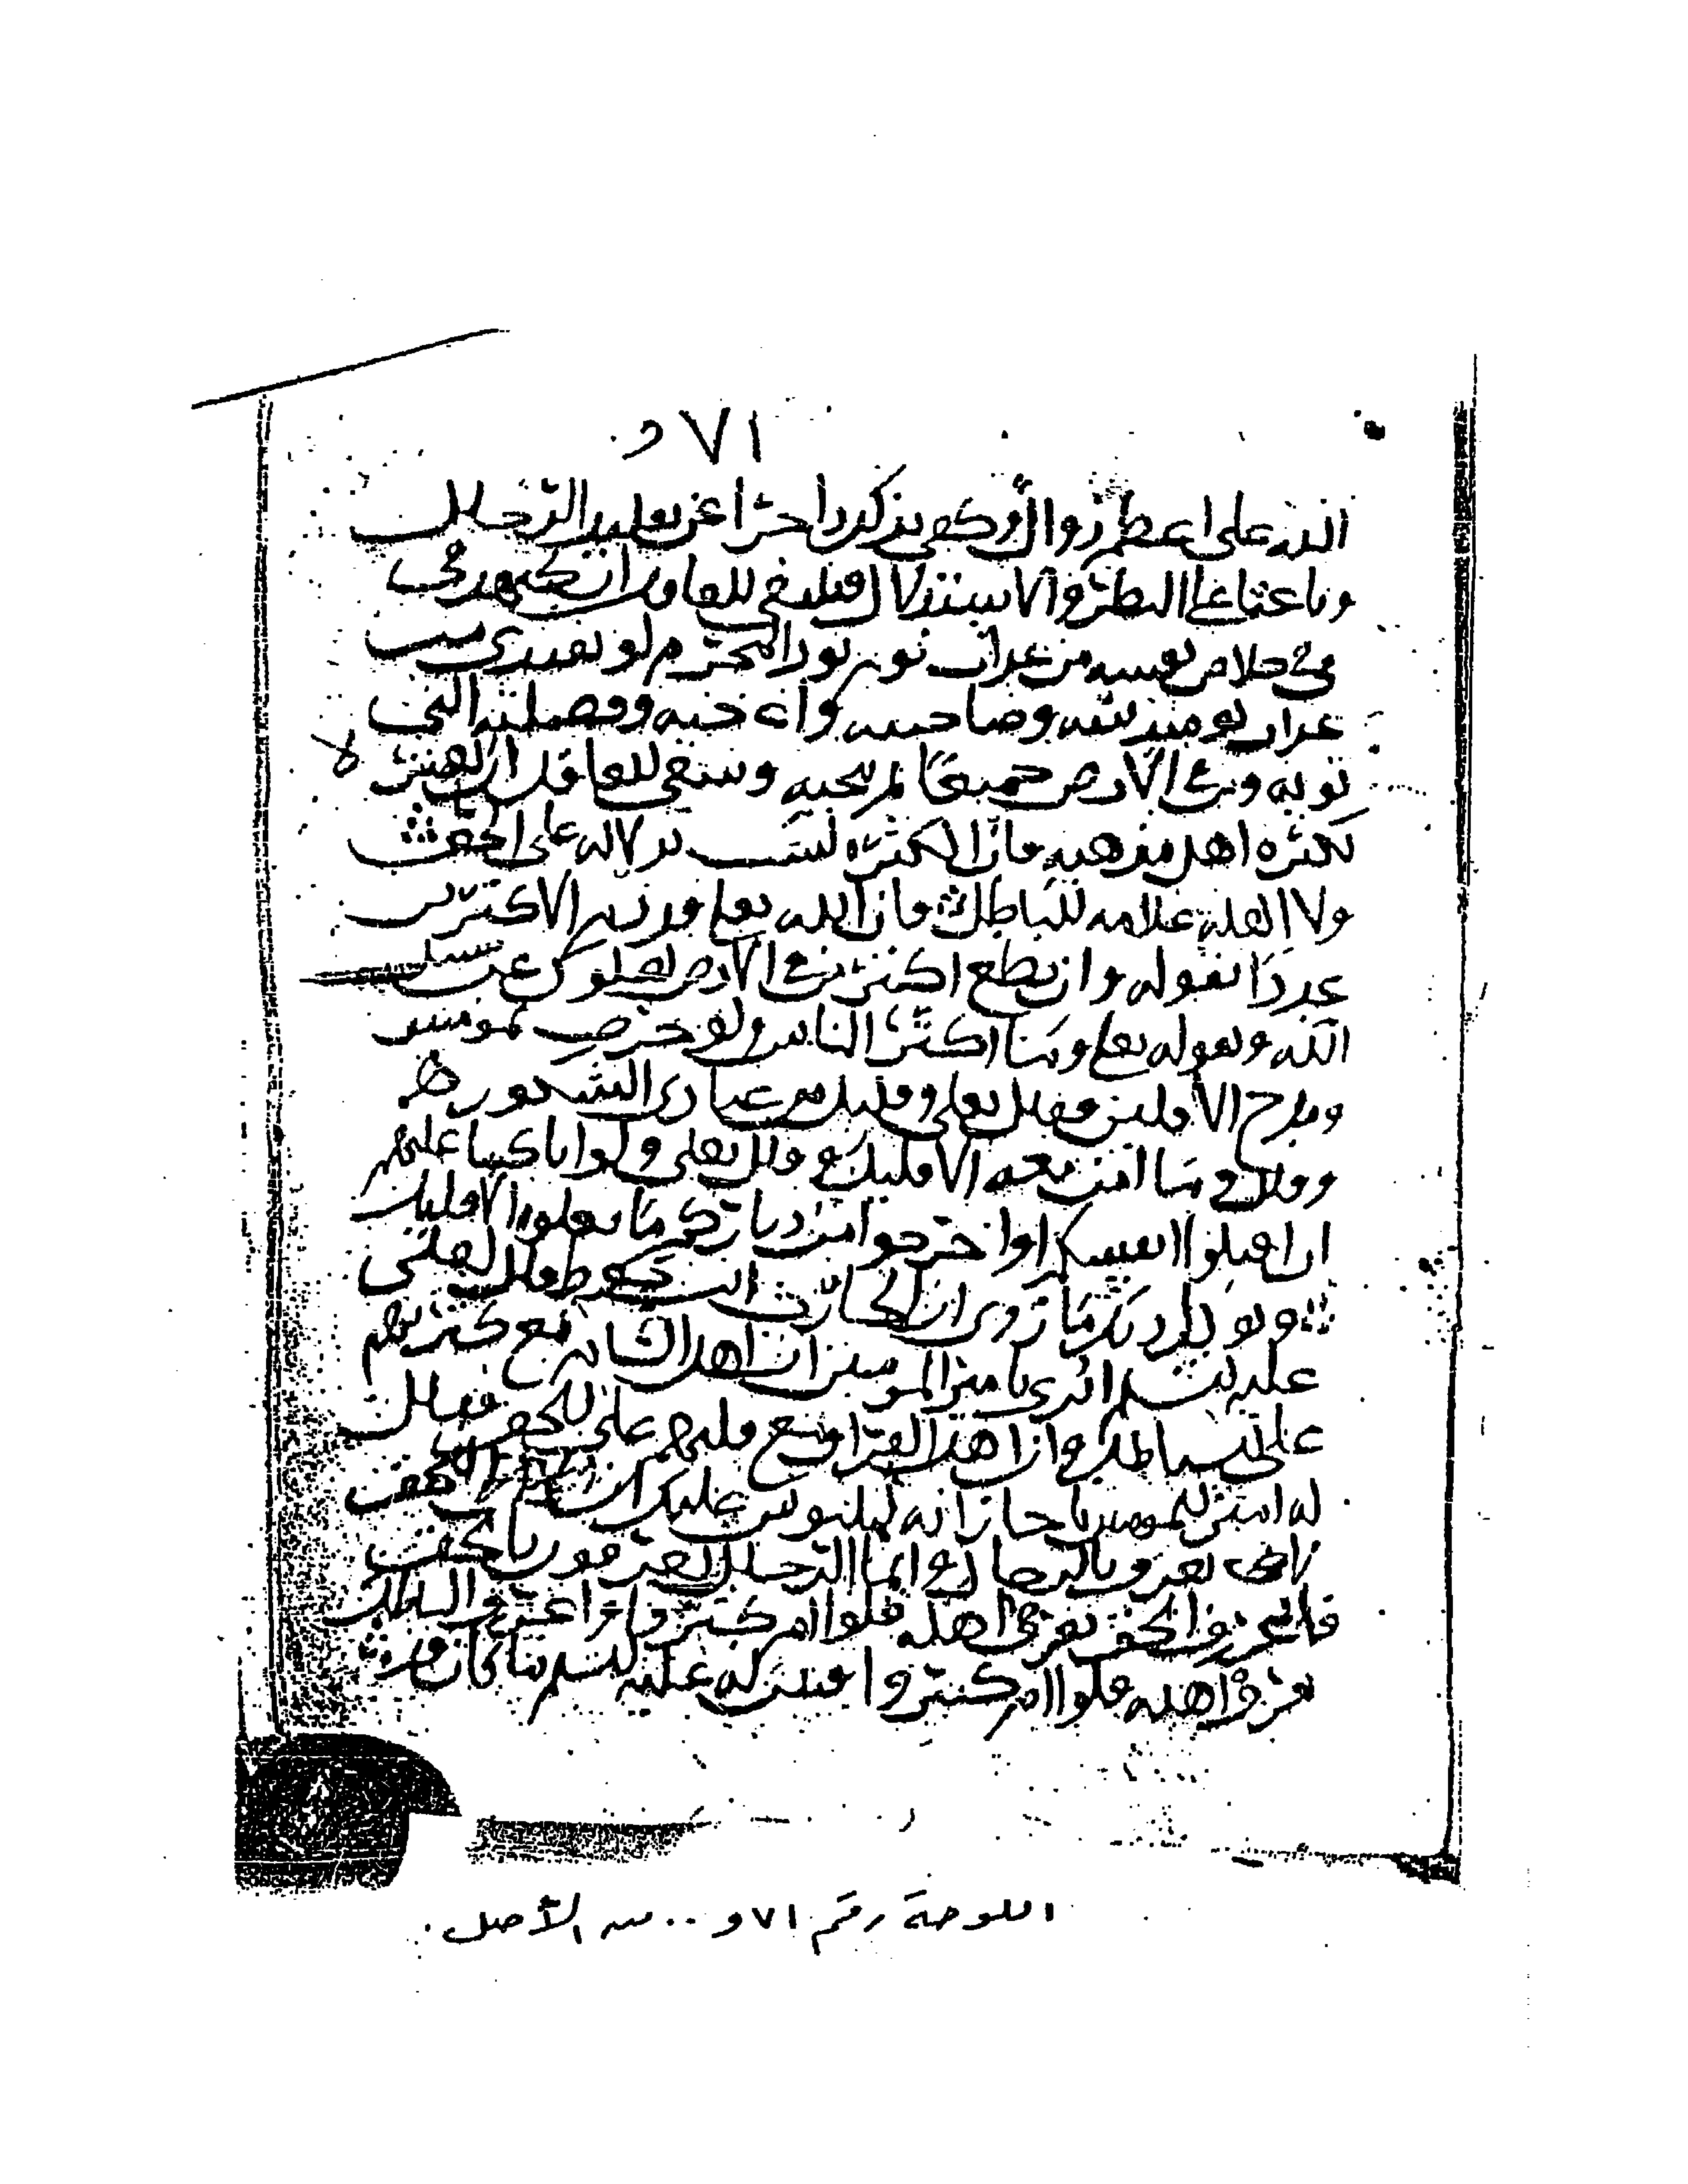 ٧١ و
الدين على اعظم زوال وكفى بذكر زاجرًا عن تقليد الرجال
وباعثا على النظر والاستدلال فينبغي للعاقل ان يجتهد في
في خلاص نفسه من عذاب يوم يود المجرم لو يفتدي من
عذاب يومئذ ببنيه وصاحبته واخيه وفصيلته التي
تويه ومن في الارض جميعًا ثم ينجيه وينبغي للعاقل ان يغتر لا
بكثرة اهل مذهبه فان الكثرة ليست بدلالة على الحق
ولا القلة علامة للباطل فان الله تعلى قد ذم الاكثرين
عددًا بقوله وان تطع اكثر من في الارض يضلوك عن سبيل
الله وبقوله تعلى وما اكثر الناس ولو حرصت بمومنين
ومدح الاقلين فقال تعلى وقليل من عبادي الشكور
وقال وما امن معه الا قليل وقال تعلى ولو انا كتبنا عليهم
ان اقتلوا انفسكم او اخرجوا من دياركم ما فعلوه الا قليل
ويويد ذلك ما روي ان الحارث ابن حوط قال لعلي
عليه السلم اترى يا امير المومنين ان اهل الشام مع كثرتهم
على الباطل وان اهل العراق مع قلتهم على الحق فقال
له امير المومنين يا حار انه لملبوس عليك ان الحق
لا يعرف بالرجال وانما الرجال يعرفون بالحق
فاعرف الحق تعرف اهله قلوا ام كثروا واعرف الباطل
تعرف اهله قلوا ام كثروا فبين له عليه السلم ما كان
اللوحة رقم ٧١ و .. من الأصل.